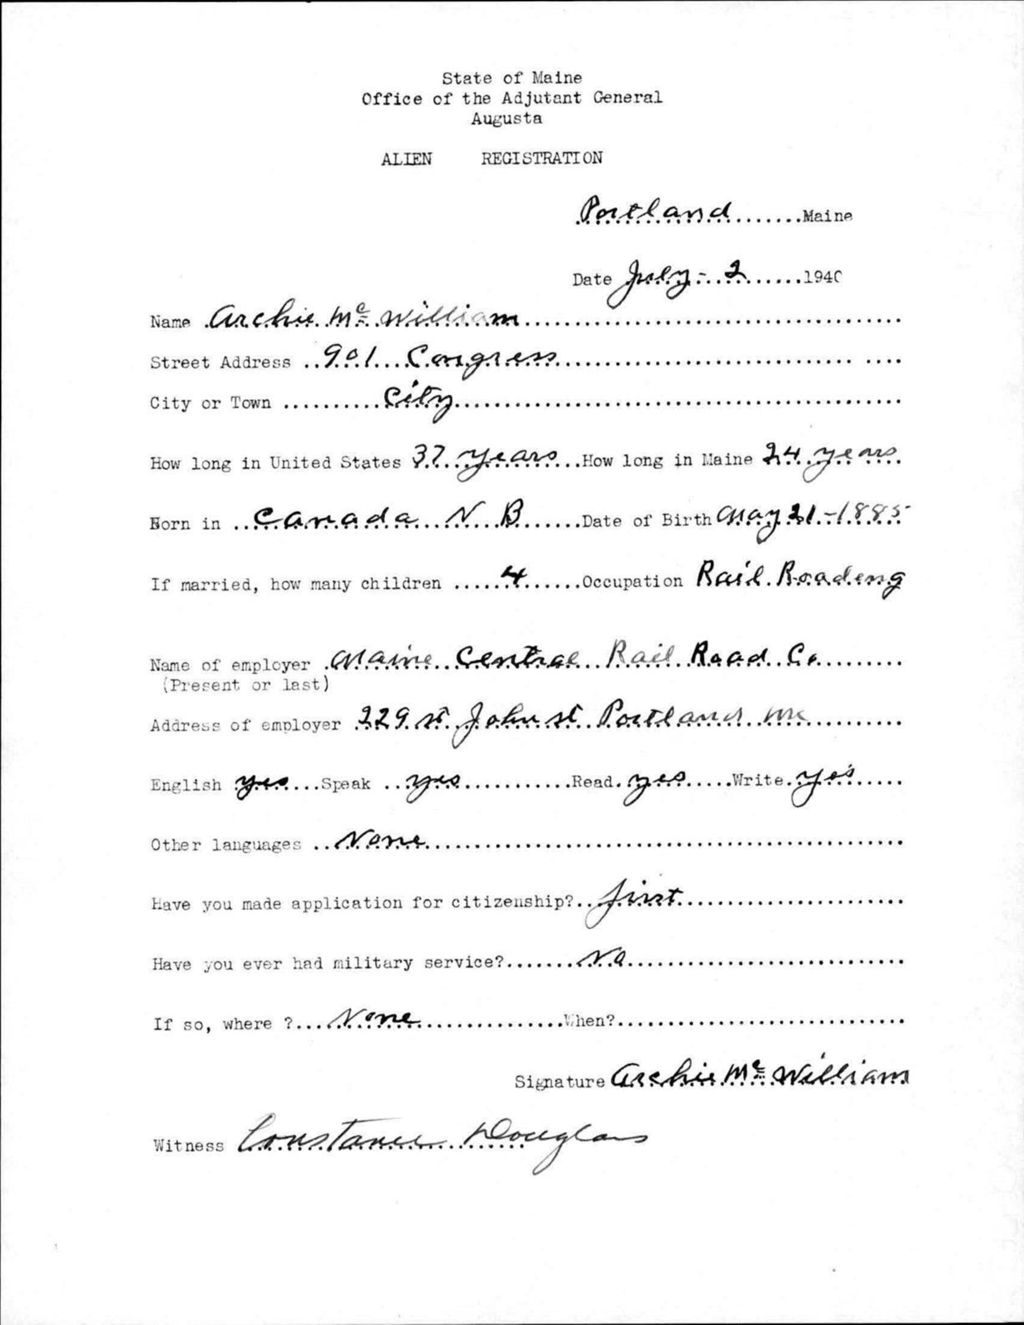 State of Maine
Office of the Adjutant General
Augusta
ALIEN REGISTRATION
Portland........Maine
Date July - 2.......1940
Name .Archie Mc William....................................
Street Address ..901....Congress.............................. ....
City or Town ..........City.............................................
How long in United States 37 years...How long in Maine 24 years.
Born in ..Canada...N. B.......Date of Birth May 21 - 1885
If married, how many children .....4......Occupation Rail Roading
Name of employer .Maine Central Rail Road Co.........
(Present or last)
Address of employer .229 st. John st Portland Me..........
English yes...Speak ..yes............Read.yes.....Write.yes.....
Other languages ..None................................................
Have you made application for citizenship?..first.......................
Have you ever had military service?.......No............................
If so, where ?...None...............When?.............................
Signature Archie Mc William
Witness Constance Douglas